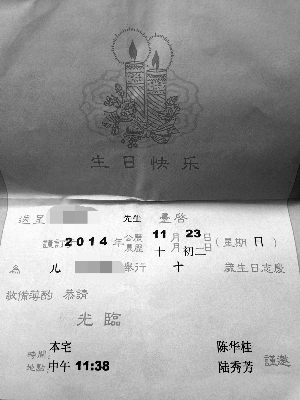 生日快乐
送呈 先生 臺啓
謹訂2014年公曆11月23日(星期日)
農曆十月初二日
為 儿 舉行 十 歲生日志慶
敬備薄酌 恭請
光臨
時間 本宅 陈华桂
地點 中午11:38 陆秀芳 謹邀